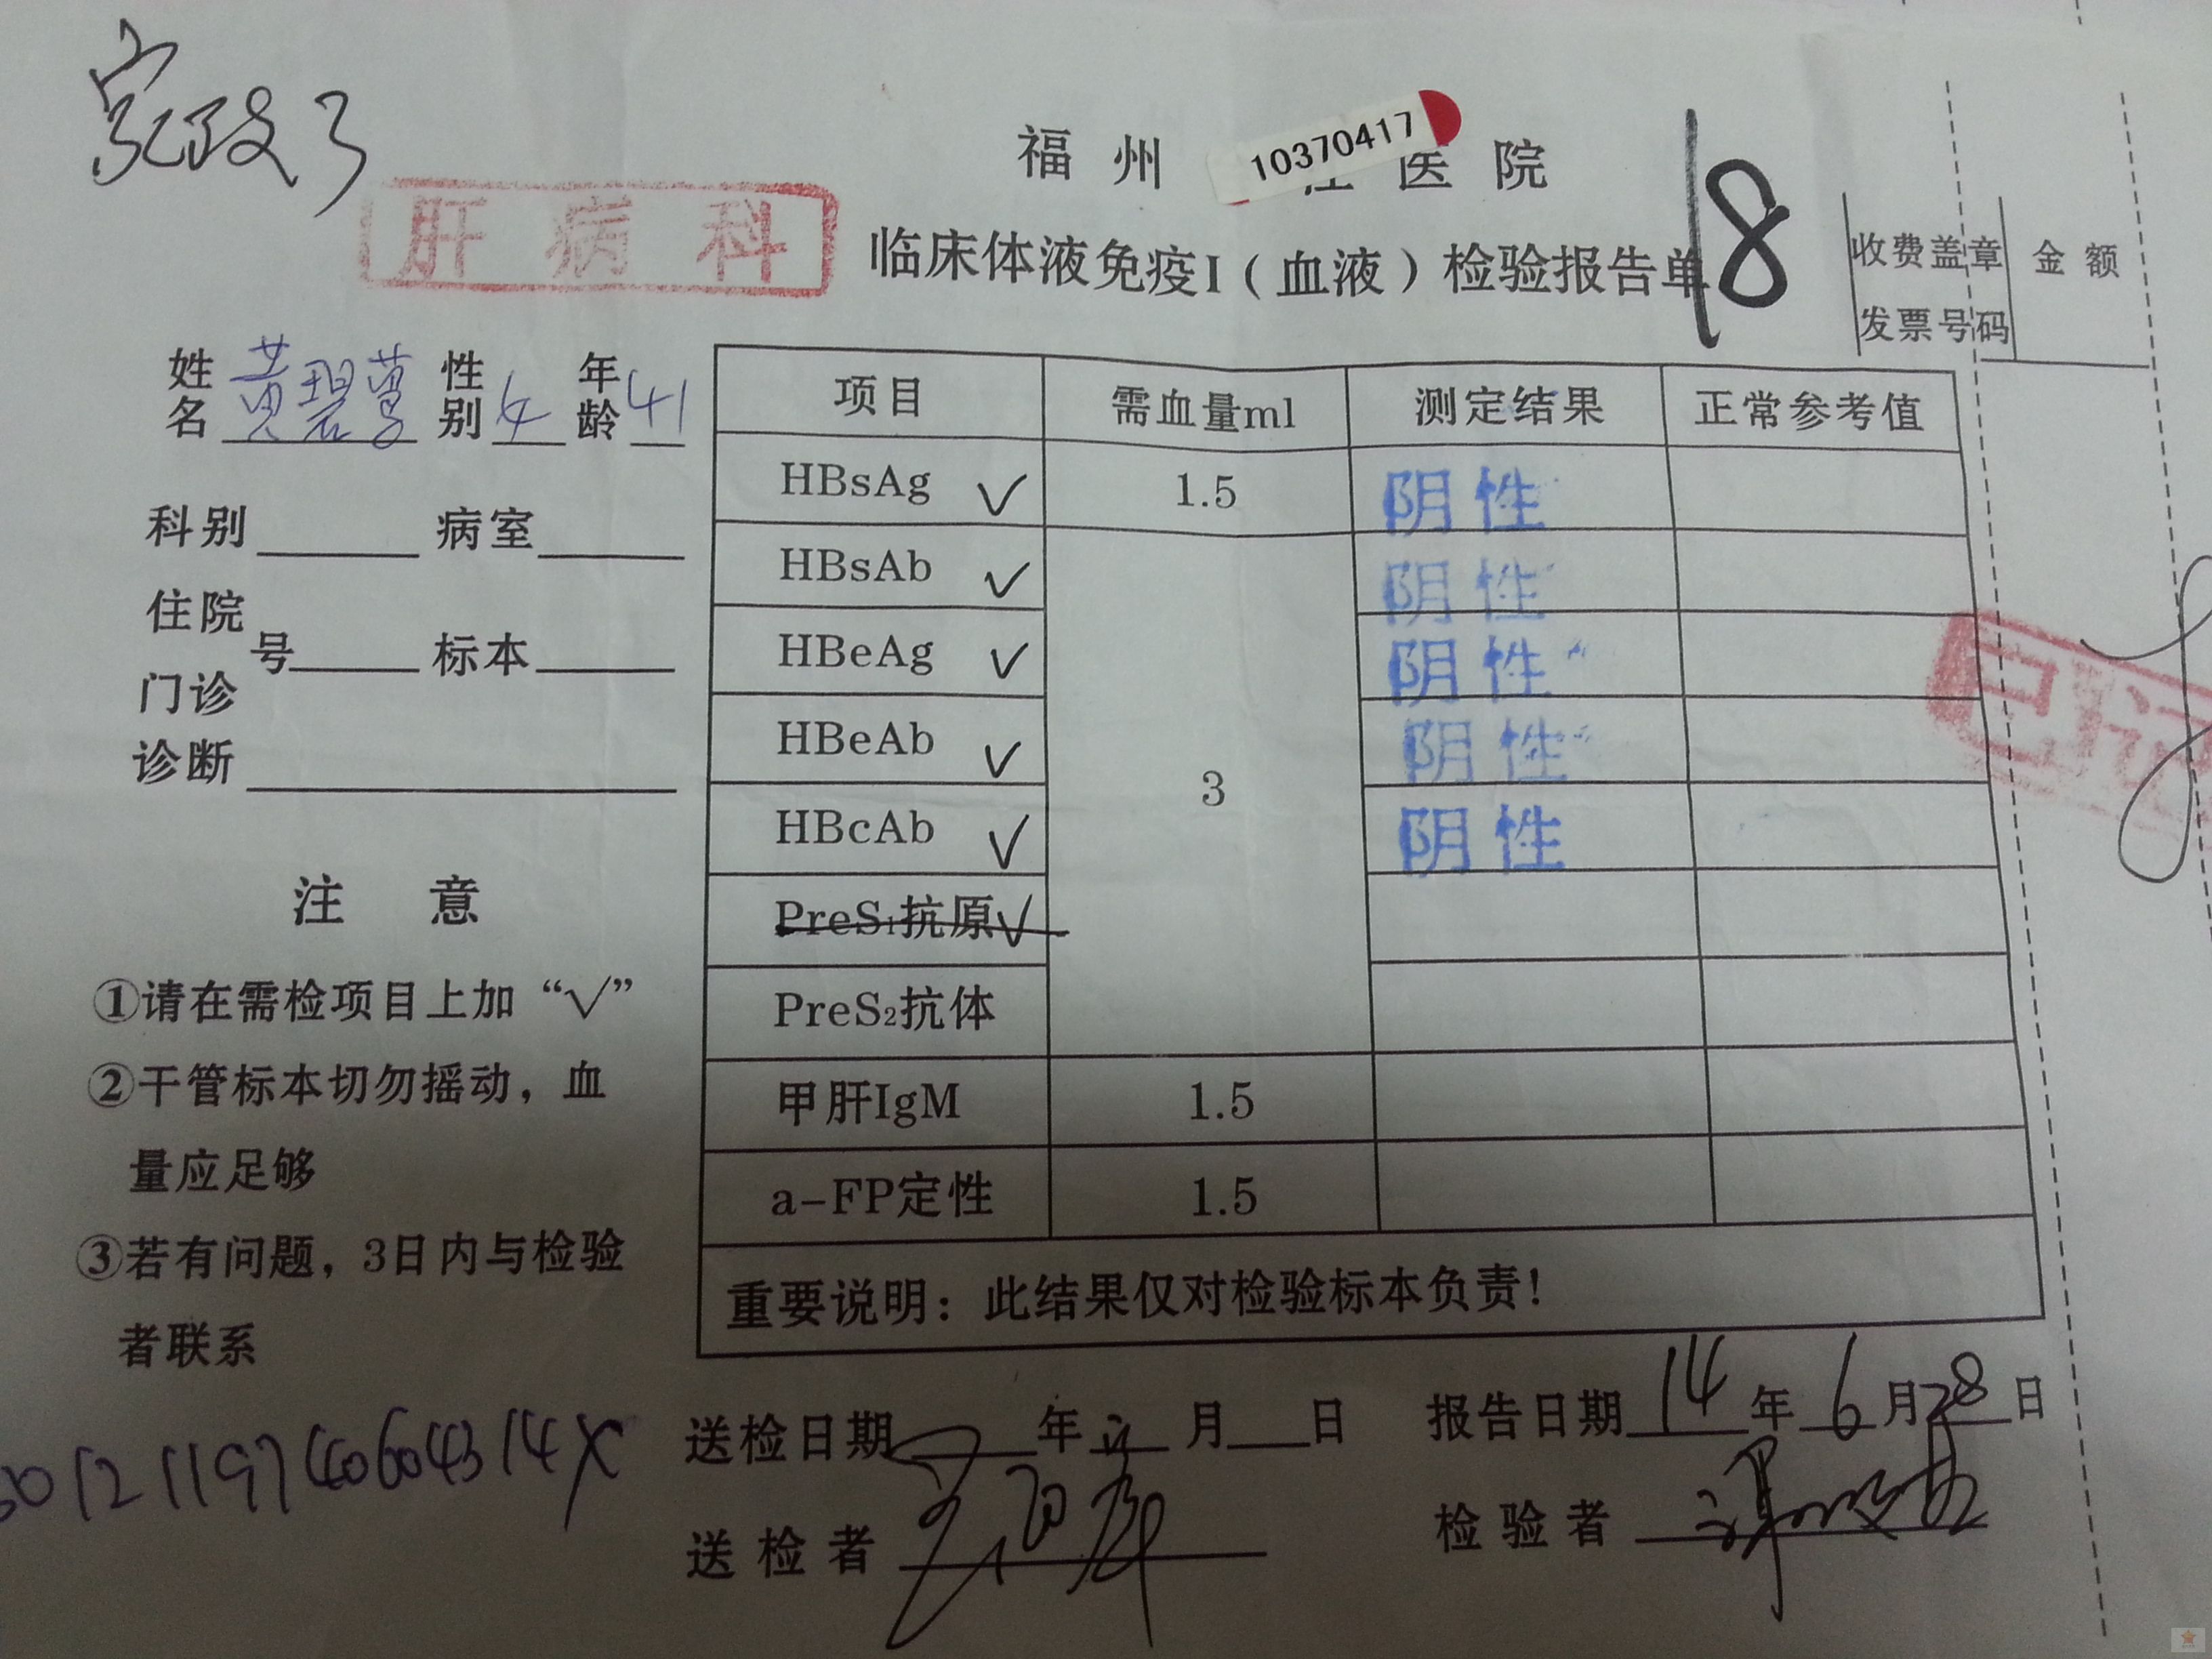 家政
10370417
福州 医院
肝病科
临床体液免疫I（血液）检验报告单
18
收费盖章 金额
发票号码
姓名 黄碧 性别 女 年龄 41
科别 病室
住院
号 标本
门诊
诊断
注意
①请在需检项目上加“√”
②干管标本切勿摇动，血
量应足够
③若有问题，3日内与检验
者联系
项目 需血量ml 测定结果 正常参考值
HBsAg √ 1.5 阴性
HBsAb √ 阴性
HBeAg √ 阴性
HBeAb √ 3 阴性
HBcAb √ 阴性
PreS₁抗原 √
PreS₂抗体
甲肝IgM 1.5
a-FP定性 1.5
重要说明：此结果仅对检验标本负责！
送检日期 年 月 日 报告日期 14 年 6 月 28 日
送检者 检验者
已